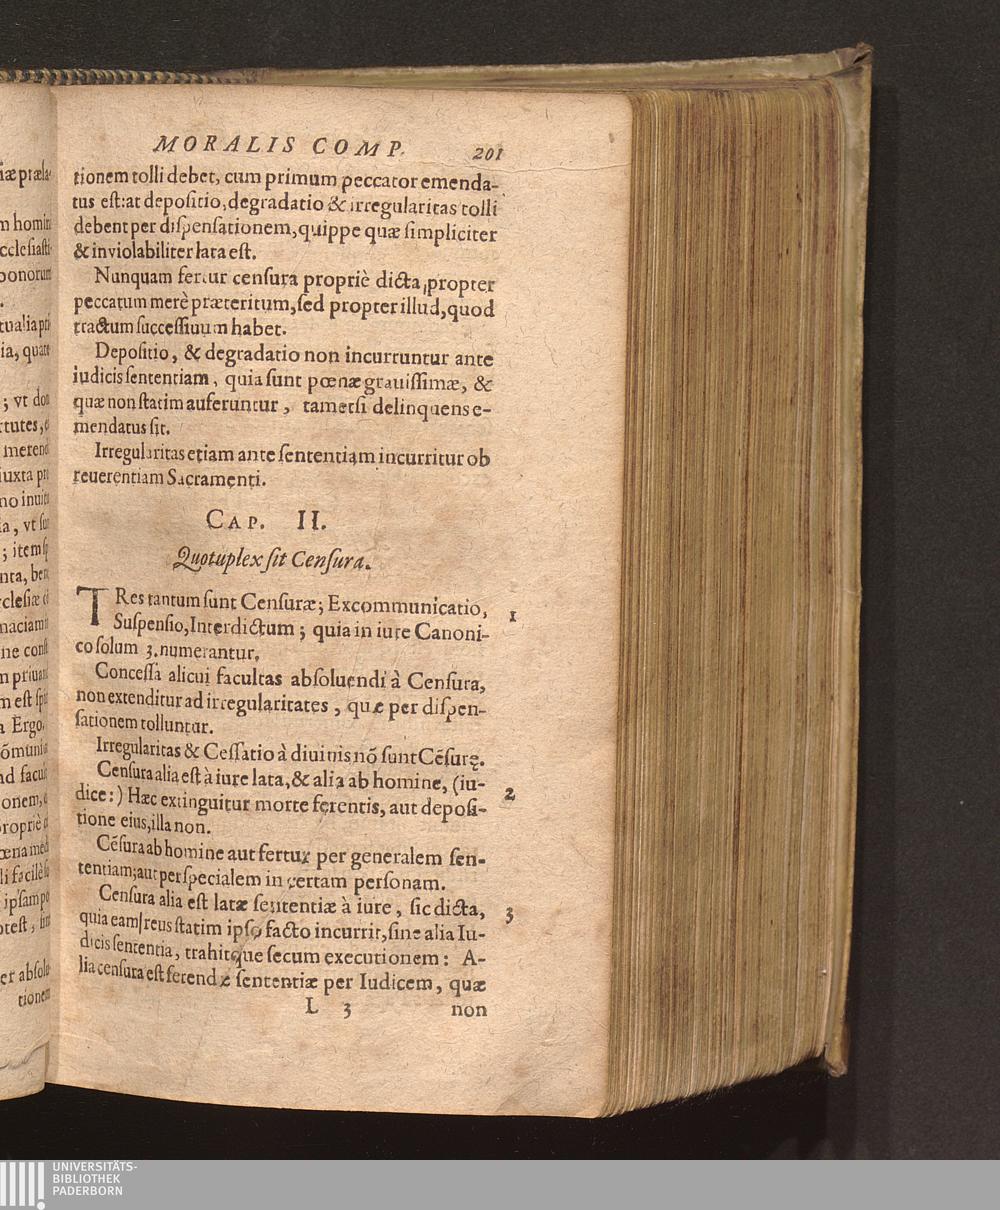 MORALIS COMP. 201
tionem tolli debet, cum primum peccator emenda-
tus est: at depositio, degradatio & irregularitas tolli
debent per dispensationem, quippe quæ simpliciter
& inviolabiliter lata est.
Nunquam fertur censura propriè dicta, propter
peccatum merè præteritum, sed propter illud, quod
tractum successiuum habet.
Depositio, & degradatio non incurruntur ante
iudicis sententiam, quia sunt pœnæ grauissimæ, &
quæ non statim auferuntur, tametsi delinquens e-
mendatus sit.
Irregularitas etiam ante sententiam incurritur ob
reuerentiam Sacramenti.
CAP. II.
Quotuplex sit Censura.
TRes tantum sunt Censuræ; Excommunicatio, 1
Suspensio, Interdictum; quia in iure Canoni-
co solum 3. numerantur.
Concessa alicui facultas absoluendi à Censura,
non extenditur ad irregularitates, quæ per dispen-
sationem tolluntur.
Irregularitas & Cessatio à diuinis nõ sunt Cẽsurę.
Censura alia est à iure lata, & alia ab homine, (iu- 2
dice:) Hæc extinguitur morte ferentis, aut deposi-
tione eius, illa non.
Cẽsura ab homine aut fertur per generalem sen-
tentiam; aut per specialem in certam personam.
Censura alia est latæ sententiæ à iure, sic dicta, 3
quia eam reus statim ipso facto incurrit, sine alia Iu-
dicis sententia, trahitque secum executionem: A-
lia censura est ferendæ sententiæ per Iudicem, quæ
L 3 non
iæ præla-
m homin
cclesiasti
bonorum
tualia pri
ia, quare
; vt don
rtutes, e
meren
iuxta pr
no inui
ia, vt su
; item sp
nta, ben
clesiæ
naciam
ne const
n priua
m est spi
a Ergo
õmuni
ad facu
onem,
ropriè
œna med
li facilè
ipsam po
otest, sin
er absolu-
tionem
UNIVERSITÄTS-
BIBLIOTHEK
PADERBORN